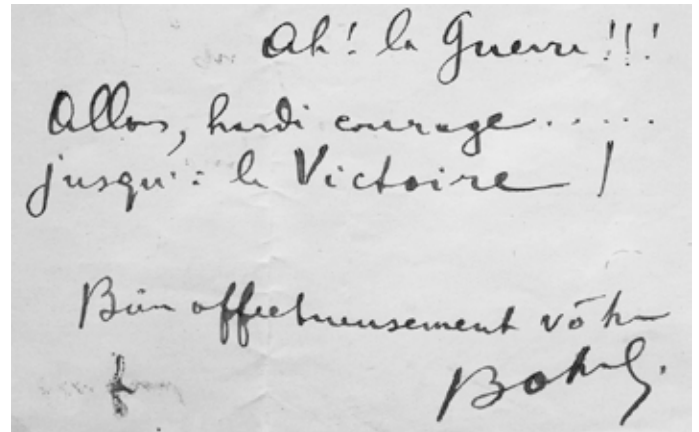 Ah! la Guerre!!!
Allons, hardi courage.....
jusqu'à la Victoire!
Bien affectueusement vôtre